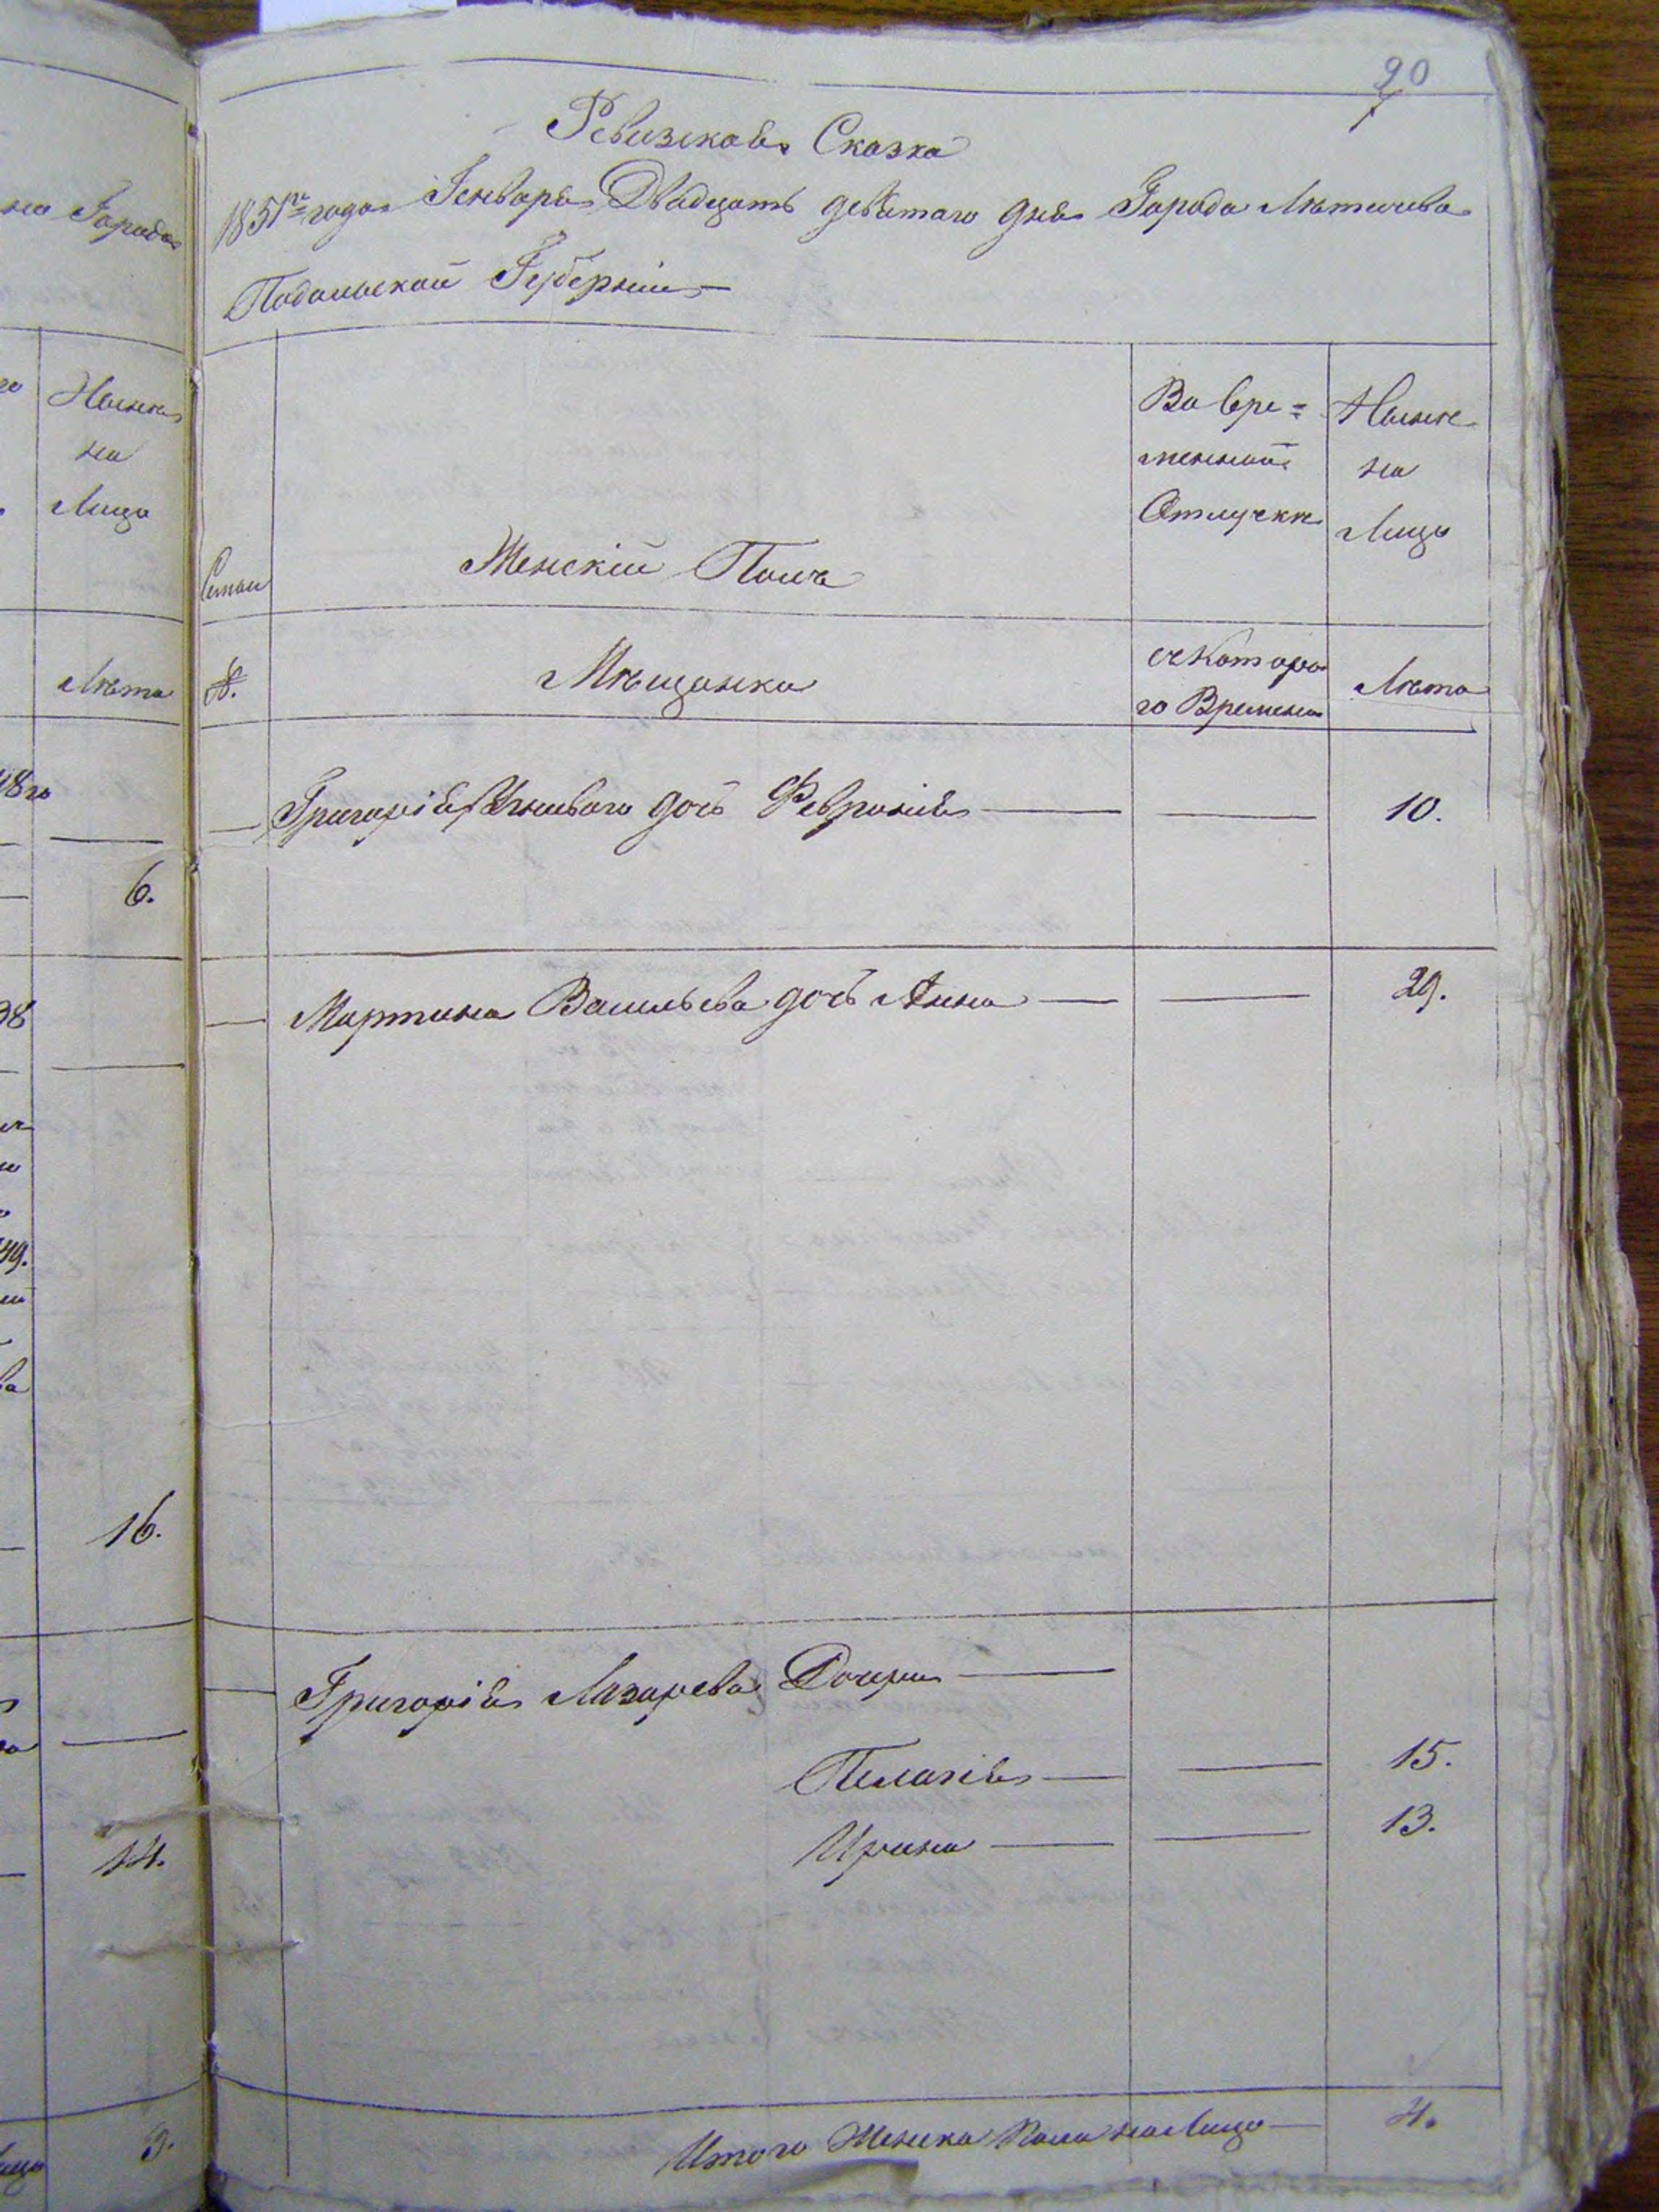 на Города
Нынѣ
на
Лицо
Лѣта
6.
16.
14.
3.
20
7
Ревизская Сказка
1851го года Генваря Двадцать девятаго дня Города Лѣтичева
Подольской Губерніи
Женскій Полъ
Во вре=
менной
Отлучкѣ
Нынѣ
на
Лицо
№.
Мѣщанки
съ Которо
го Времени
Лѣта
Григорія дочь Февронія 10.
Мартина Васильева дочь Анна 29.
Григорія Лазарева Дочери
Пелагія 15.
Ирина 13.
Итого Женска Пола на Лицо 4.